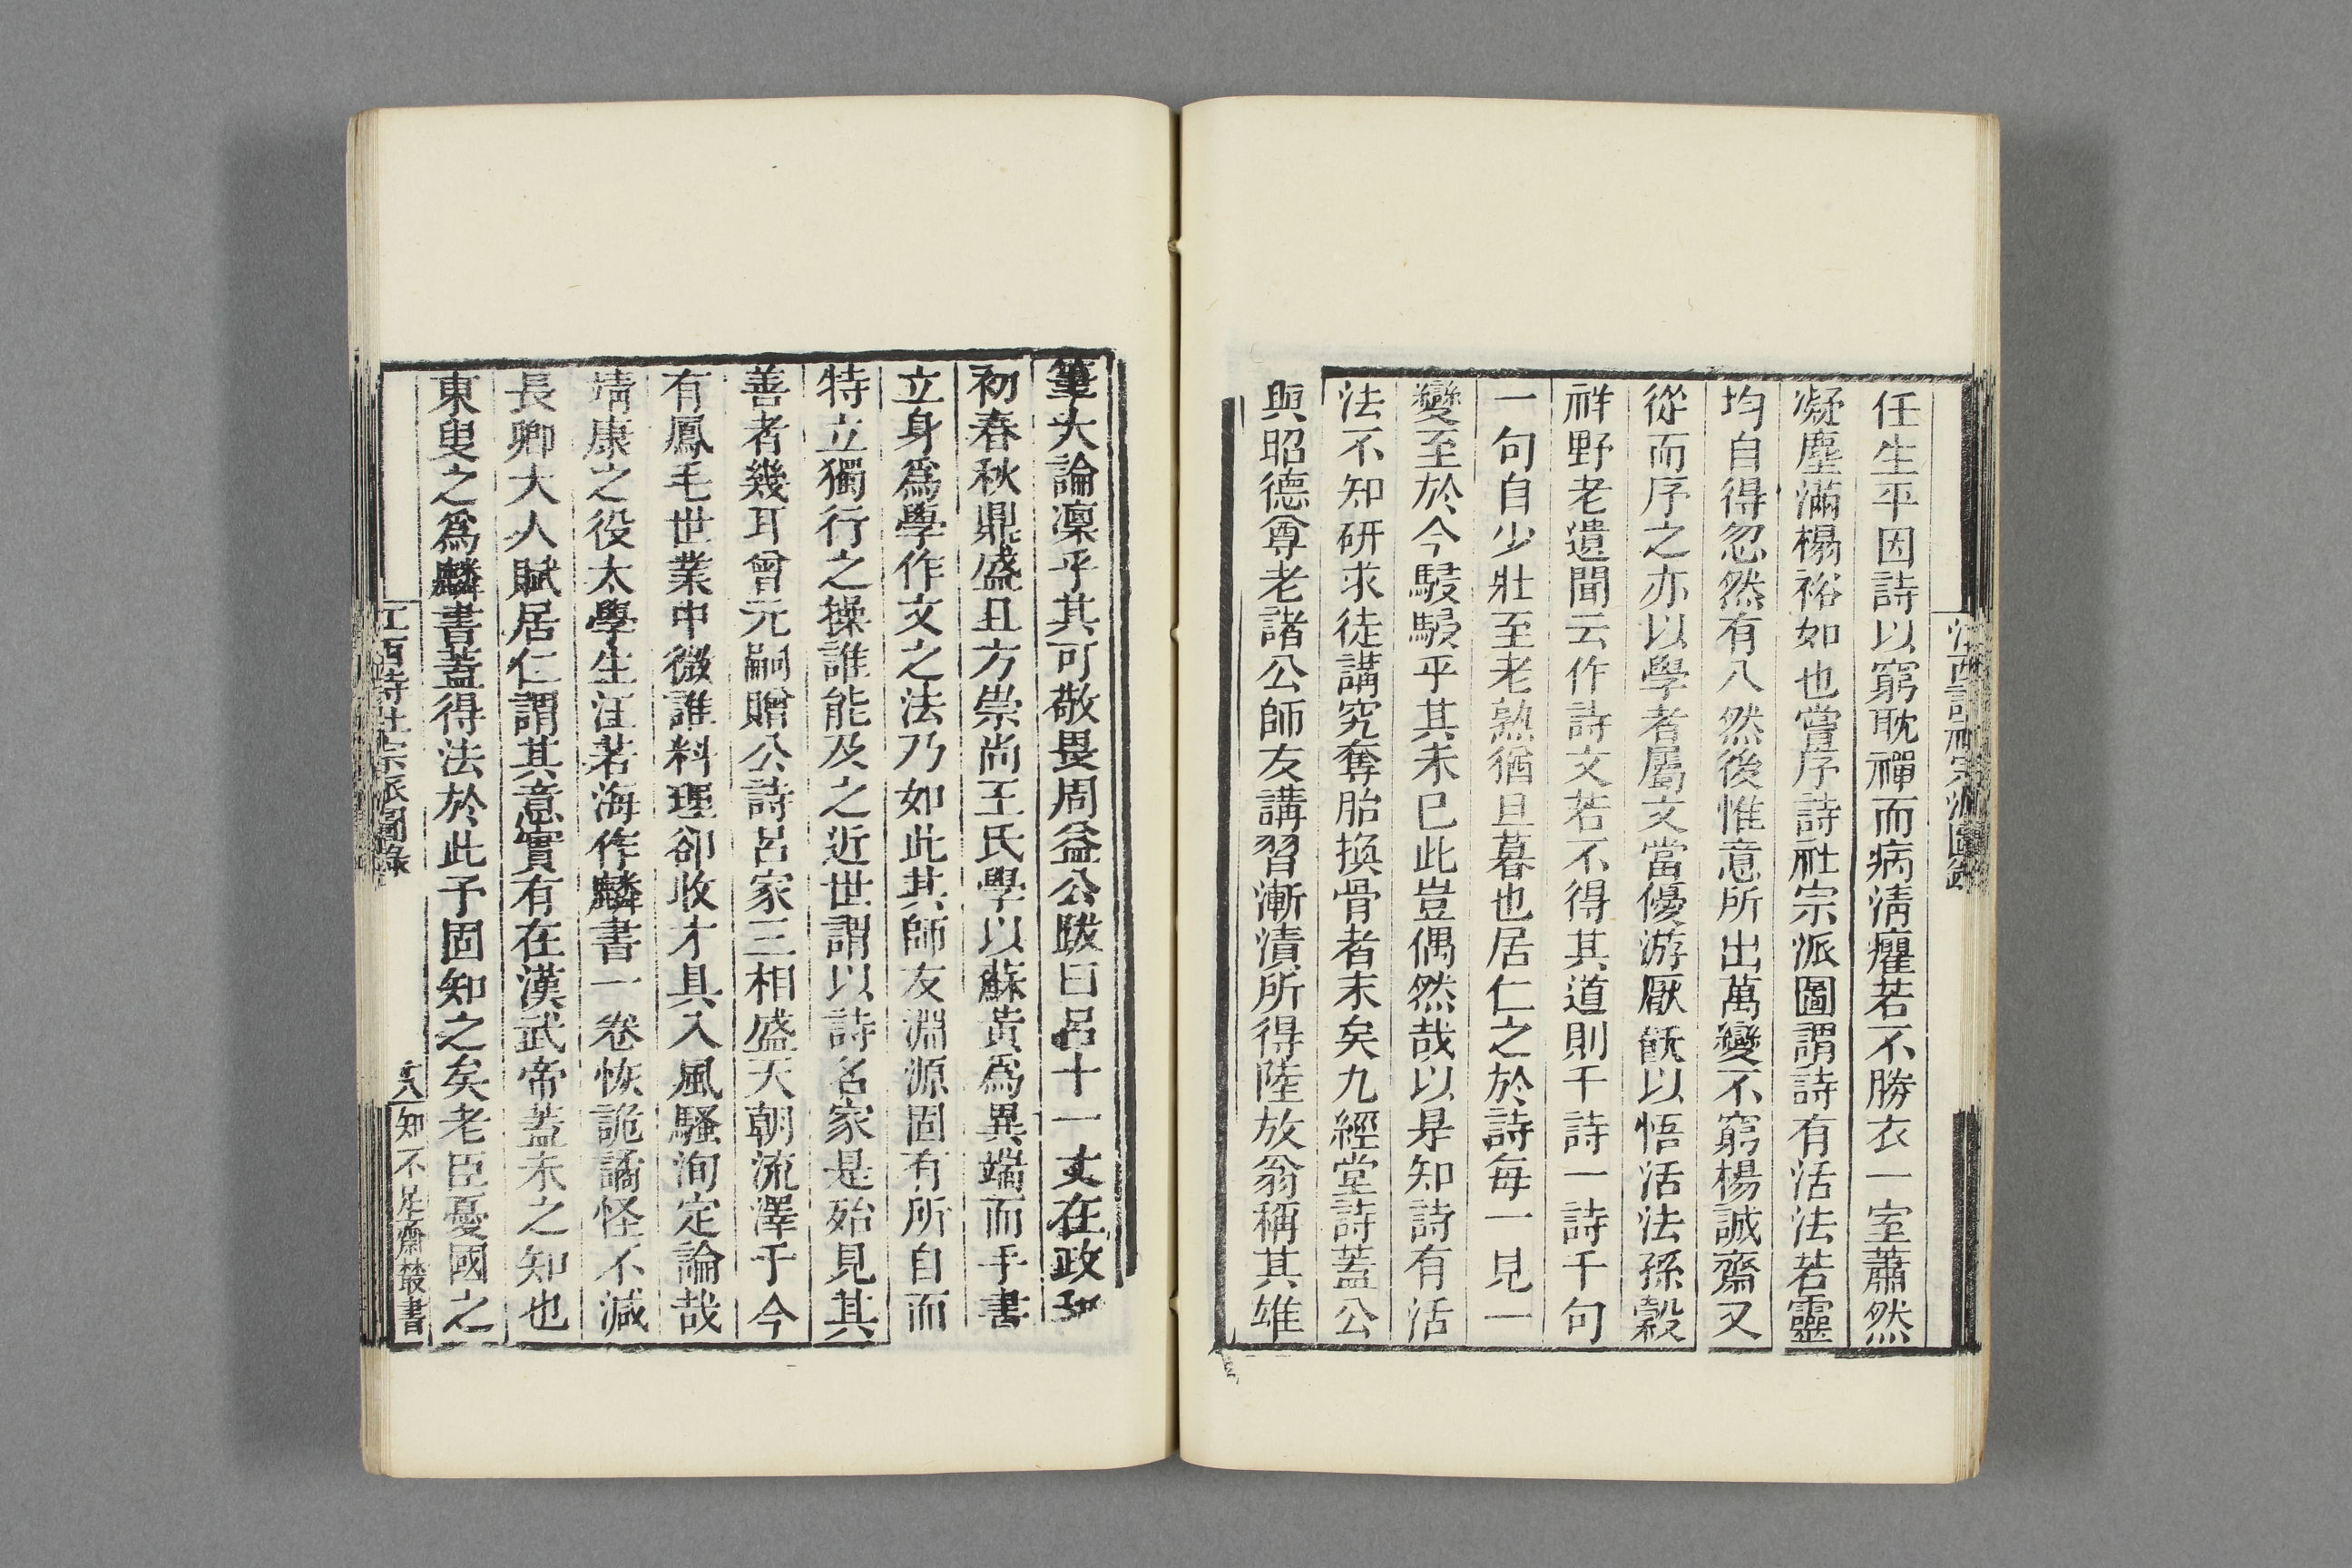 任生平因詩以窮耽禪而病淸癯若不勝衣一室蕭然
凝塵滿榻裕如也嘗序詩社宗派圖謂詩有活法若靈
均自得忽然有入然後惟意所出萬變不窮楊誠齋又
從而序之亦以學者屬文當優游厭飫以悟活法孫穀
祥野老遺聞云作詩文若不得其道則千詩一詩千句
一句自少壯至老熟猶旦暮也居仁之於詩每一見一
變至於今駸駸乎其未已此豈偶然哉以是知詩有活
法不知研求徒講究奪胎換骨者末矣九經堂詩蓋公
與昭德尊老諸公師友講習漸漬所得陸放翁稱其雄
江西詩社宗派圖錄
筆大論凜乎其可敬畏周益公跋曰呂十一丈在政和
初春秋鼎盛且方崇尚王氏學以蘇黃爲異端而手書
立身爲學作文之法乃如此其師友淵源固有所自而
特立獨行之操誰能及之近世謂以詩名家是殆見其
善者幾耳曾元嗣贈公詩呂家三相盛天朝流澤于今
有鳳毛世業中微誰料理卻收才具入風騷洵定論哉
靖康之役太學生汪若海作麟書一卷恢詭譎怪不減
長卿大人賦居仁謂其意實有在漢武帝蓋未之知也
東叟之爲麟書蓋得法於此予固知之矣老臣憂國之
江西詩社宗派圖錄
六
知不足齋叢書